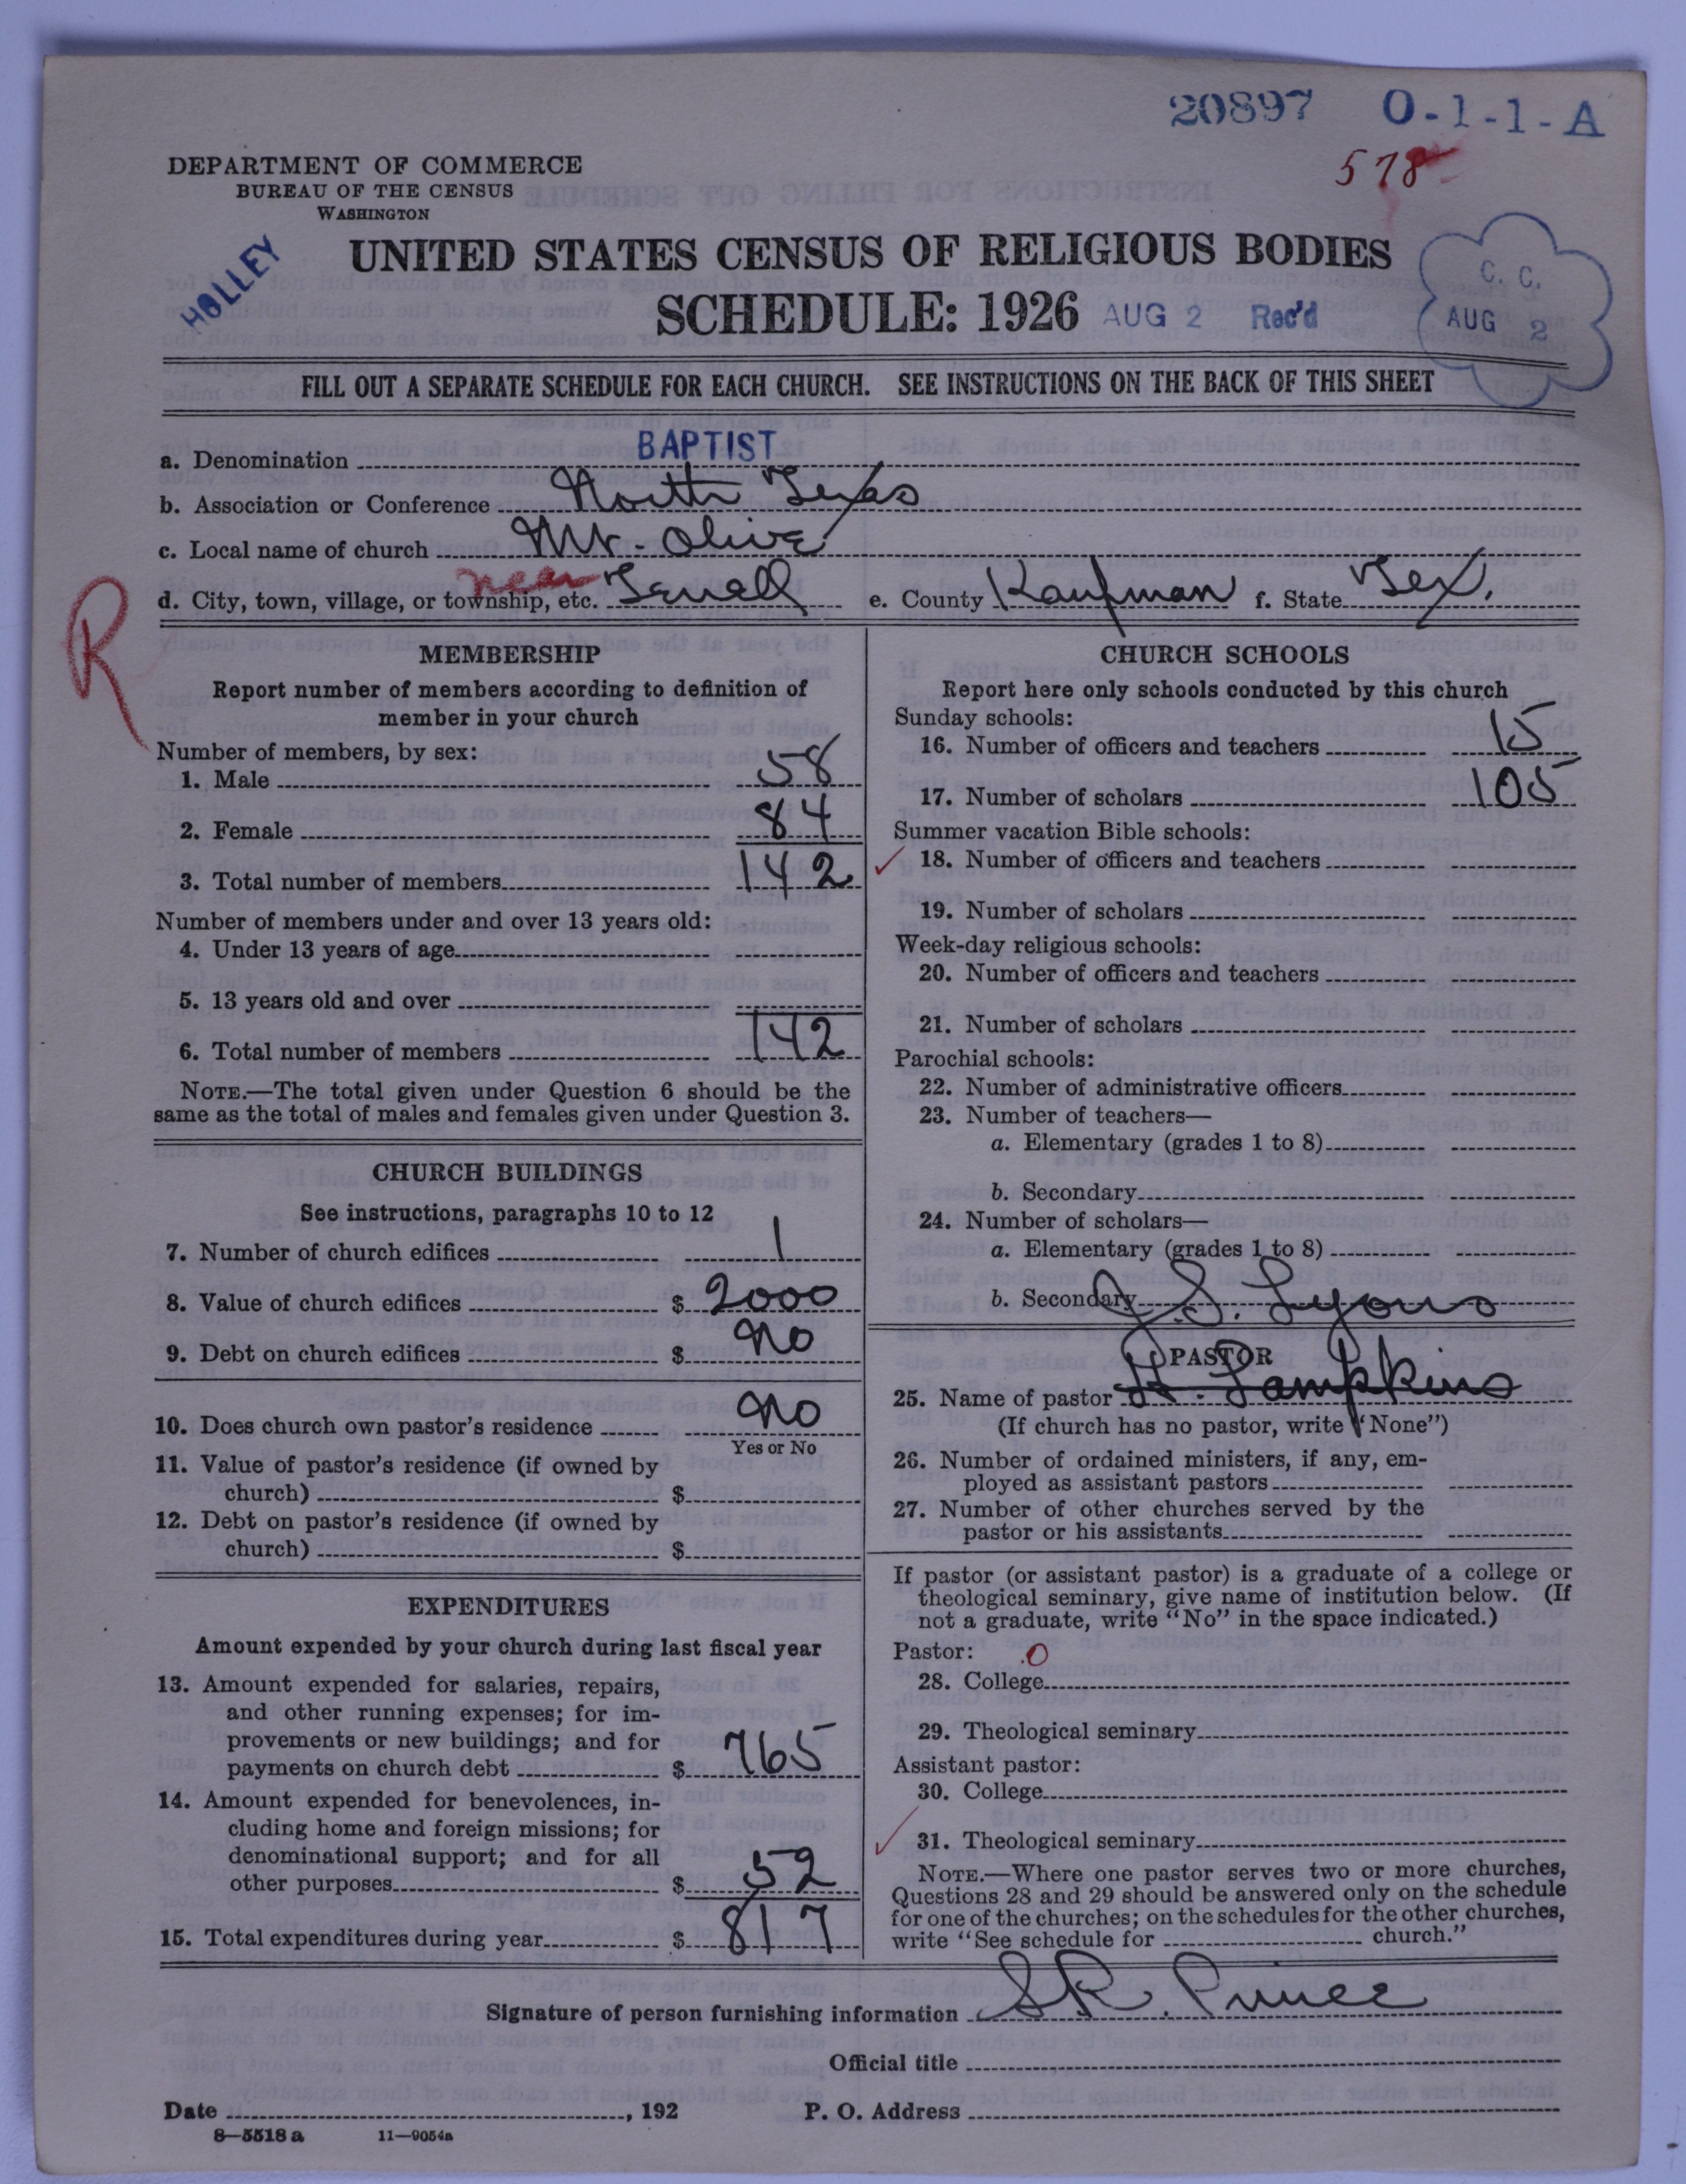 20897 O-1-1-A
578
DEPARTMENT OF COMMERCE
BUREAU OF THE CENSUS
WASHINGTON
HOLLEY
UNITED STATES CENSUS OF RELIGIOUS BODIES
SCHEDULE: 1926 AUG 2 Rec'd
C. C.
AUG 2
FILL OUT A SEPARATE SCHEDULE FOR EACH CHURCH. SEE INSTRUCTIONS ON THE BACK OF THIS SHEET
a. Denomination BAPTIST
b. Association or Conference North Texas
c. Local name of church Mt. Olive
d. City, town, village, or township, etc. near Terrell e. County Kaufman f. State Tex.
R
MEMBERSHIP
Report number of members according to definition of
member in your church
Number of members, by sex:
1. Male 58
2. Female 84
3. Total number of members 142
Number of members under and over 13 years old:
4. Under 13 years of age
5. 13 years old and over
6. Total number of members 142
NOTE.—The total given under Question 6 should be the
same as the total of males and females given under Question 3.
CHURCH BUILDINGS
See instructions, paragraphs 10 to 12
7. Number of church edifices 1
8. Value of church edifices $ 2000
9. Debt on church edifices $ No
10. Does church own pastor's residence No
Yes or No
11. Value of pastor's residence (if owned by
church) $
12. Debt on pastor's residence (if owned by
church) $
EXPENDITURES
Amount expended by your church during last fiscal year
13. Amount expended for salaries, repairs,
and other running expenses; for im-
provements or new buildings; and for
payments on church debt $ 765
14. Amount expended for benevolences, in-
cluding home and foreign missions; for
denominational support; and for all
other purposes $ 52
15. Total expenditures during year $ 817
CHURCH SCHOOLS
Report here only schools conducted by this church
Sunday schools:
16. Number of officers and teachers 15
17. Number of scholars 105
Summer vacation Bible schools:
18. Number of officers and teachers
19. Number of scholars
Week-day religious schools:
20. Number of officers and teachers
21. Number of scholars
Parochial schools:
22. Number of administrative officers
23. Number of teachers—
a. Elementary (grades 1 to 8)
b. Secondary
24. Number of scholars—
a. Elementary (grades 1 to 8)
b. Secondary
J. S. Lyons
PASTOR
25. Name of pastor H. Lampkins
(If church has no pastor, write "None")
26. Number of ordained ministers, if any, em-
ployed as assistant pastors
27. Number of other churches served by the
pastor or his assistants
If pastor (or assistant pastor) is a graduate of a college or
theological seminary, give name of institution below. (If
not a graduate, write "No" in the space indicated.)
Pastor: 0
28. College
29. Theological seminary
Assistant pastor:
30. College
31. Theological seminary
NOTE.—Where one pastor serves two or more churches,
Questions 28 and 29 should be answered only on the schedule
for one of the churches; on the schedules for the other churches,
write "See schedule for church."
Signature of person furnishing information S. R. Prince
Official title
Date , 192 P. O. Address
8—5518 a 11—9054a